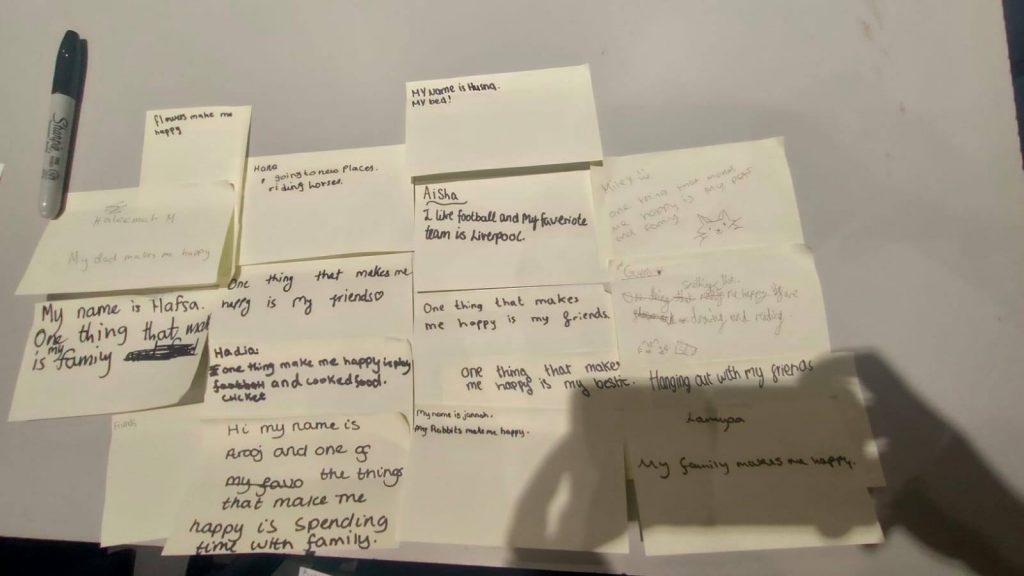 Sharpie
flowers make me
happy
Haleemah M
My dad makes me happy
My name is Hafsa.
One thing that mak
is my family
Friends
Hana
going to new places.
riding horses.
One thing that makes me
happy is my friends♡
Hadia
one thing make me happy is play
football and cooked food.
cricket
Hi my name is
Arooj and one of
my favo the things
that make me
happy is spending
time with family.
MY Name is Husna.
MY bed!
Aisha
I like football and My faveriote
team is Liverpool.
One thing that makes
me happy is my friends.
one thing that makes
me happy is my bestie.
My name is jannah.
My Rabbits make me happy.
Miley
one thing that makes
me happy is my pet
and family
One thing that me happy
and
Hanging out with my friends
Lamysa
My family makes me happy.